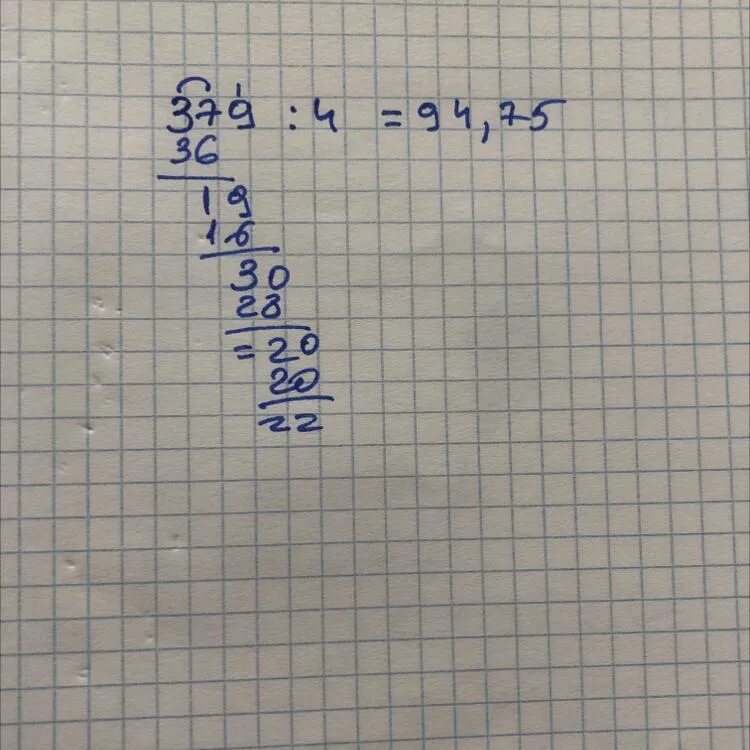 379 : 4 = 94,75
36
19
16
30
28
= 20
20
==